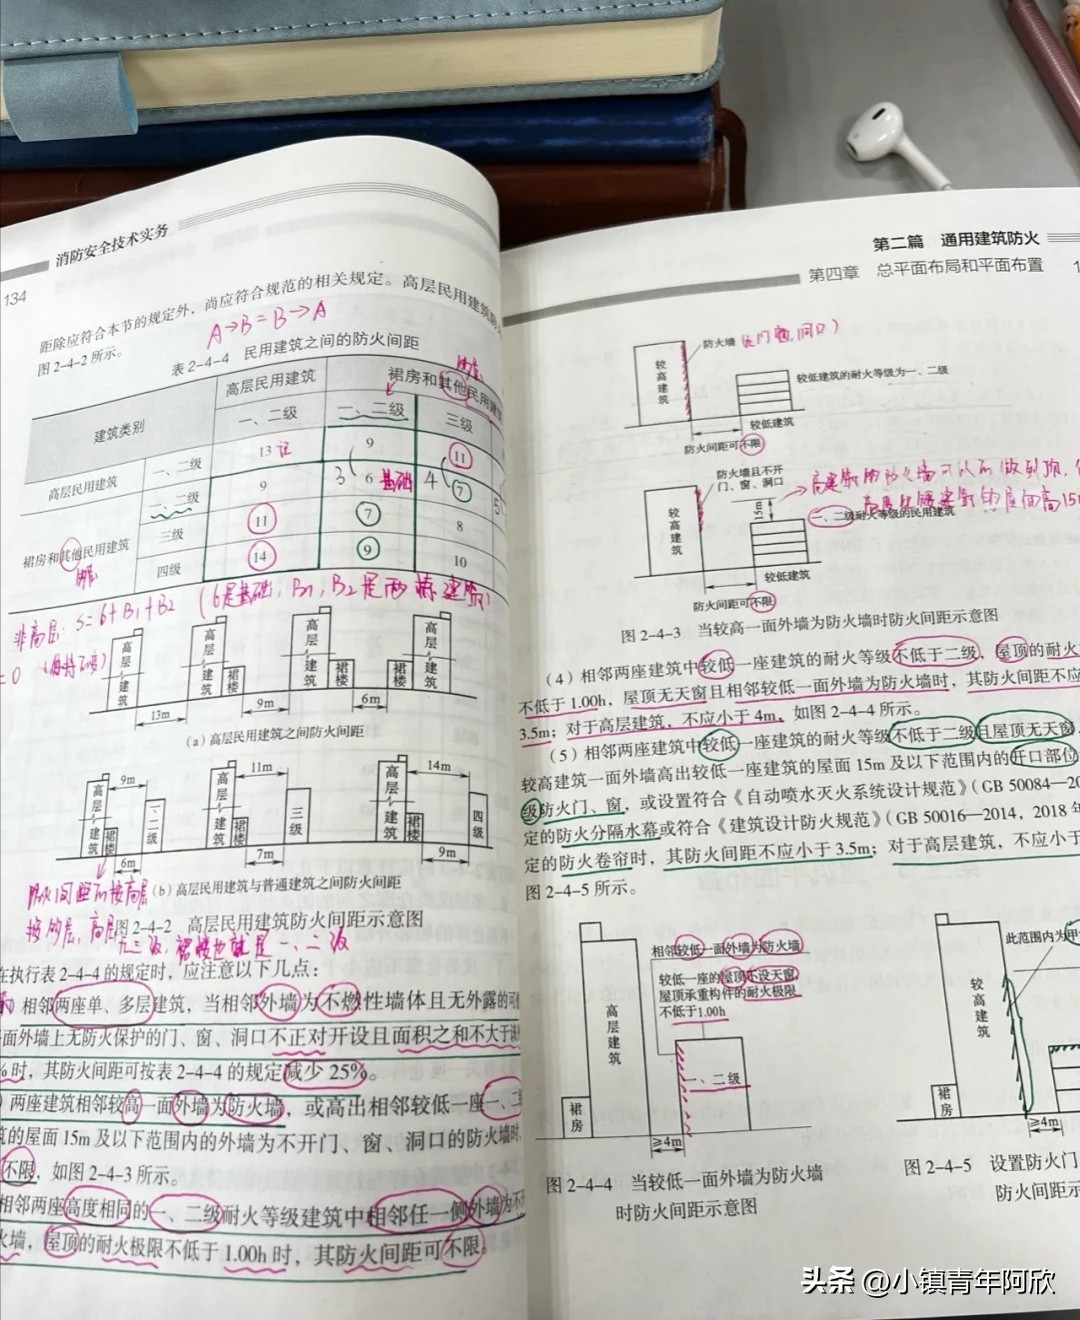 消防安全技术实务
134
距除应符合本节的规定外，尚应符合规范的相关规定。高层民用建筑
图2-4-2所示。
A→B=B→A
表2-4-4 民用建筑之间的防火间距
建筑类别
高层民用建筑
裙房和其他民用建
一、二级
一、二级
三级
高层民用建筑
一、二级
13 记
9
11
裙房和其他民用建筑
一、二级
9
3
6
基础
4
7
5
三级
11
7
8
四级
14
9
10
非高层: S=6+B1+B2 (6是基础, B1, B2是两栋建筑)
高层建筑
高层建筑
裙楼
高层建筑
裙楼
裙楼
高层建筑
13m
9m
6m
(a)高层民用建筑之间防火间距
9m
11m
14m
高层建筑
裙楼
一、二级
高层建筑
裙楼
三级
高层建筑
裙楼
四级
6m
7m
9m
(b)高层民用建筑与普通建筑之间防火间距
图2-4-2 高层民用建筑防火间距示意图
在执行表2-4-4的规定时，应注意以下几点：
相邻两座单、多层建筑，当相邻外墙为不燃性墙体且无外露的可
面外墙上无防火保护的门、窗、洞口不正对开设且面积之和不大于
%时，其防火间距可按表2-4-4的规定减少25%。
两座建筑相邻较高一面外墙为防火墙，或高出相邻较低一座一、二
筑的屋面15m及以下范围内的外墙为不开门、窗、洞口的防火墙时，
不限，如图2-4-3所示。
相邻两座高度相同的一、二级耐火等级建筑中相邻任一侧外墙为
火墙，屋顶的耐火极限不低于1.00h时，其防火间距可不限。
第二篇 通用建筑防火
第四章 总平面布局和平面布置
较高建筑
防火墙
较低建筑的耐火等级为一、二级
较低建筑
防火间距可不限
防火墙且不开
门、窗、洞口
较高建筑
15m
一、二级耐火等级的民用建筑
较低建筑
防火间距可不限
图2-4-3 当较高一面外墙为防火墙时防火间距示意图
（4）相邻两座建筑中较低一座建筑的耐火等级不低于二级，屋顶的耐火
不低于1.00h，屋顶无天窗且相邻较低一面外墙为防火墙时，其防火间距不应
3.5m；对于高层建筑，不应小于4m，如图2-4-4所示。
（5）相邻两座建筑中较低一座建筑的耐火等级不低于二级且屋顶无天窗，
较高建筑一面外墙高出较低一座建筑的屋面15m及以下范围内的开口部位
级防火门、窗，或设置符合《自动喷水灭火系统设计规范》（GB 50084—20
定的防火分隔水幕或符合《建筑设计防火规范》（GB 50016—2014，2018年
定的防火卷帘时，其防火间距不应小于3.5m；对于高层建筑，不应小于
图2-4-5所示。
相邻较低一面外墙为防火墙
较低一座的屋顶不设天窗
屋顶承重构件的耐火极限
不低于1.00h
高层建筑
裙房
一、二级
≥4m
图2-4-4 当较低一面外墙为防火墙
时防火间距示意图
此范围内为甲
较高建筑
裙房
≥4m
图2-4-5 设置防火门
防火间距示
头条 @小镇青年阿欣